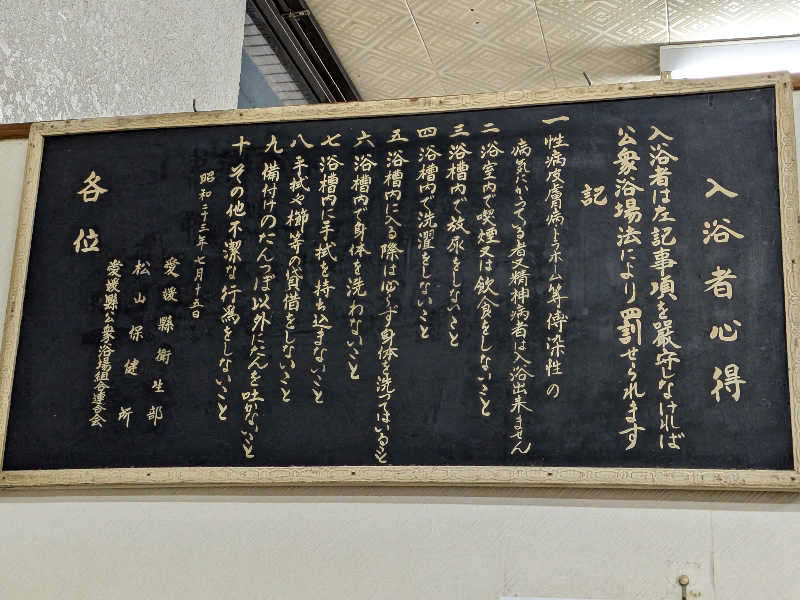 入浴者心得
入浴者は左記事項を嚴守しなければ
公衆浴場法により罰せられます
記
一 性病皮膚病トラホーム等傳染性の
病気にかゝっている者、精神病者は入浴出来ません
二 浴室内で喫煙又は飲食をしないこと
三 浴槽内で放尿をしないこと
四 浴槽内で洗濯をしないこと
五 浴槽内に入る際は必らず身体を洗ってはいること
六 浴槽内で身体を洗わないこと
七 浴槽内に手拭を持ち込まないこと
八 手拭や櫛等の貸借をしないこと
九 備付けのたんつぼ以外にたんを吐かないこと
十 その他不潔な行為をしないこと
昭和二十三年七月十五日
愛媛縣衛生部
松山保健所
愛媛縣公衆浴場組合連合会
各位